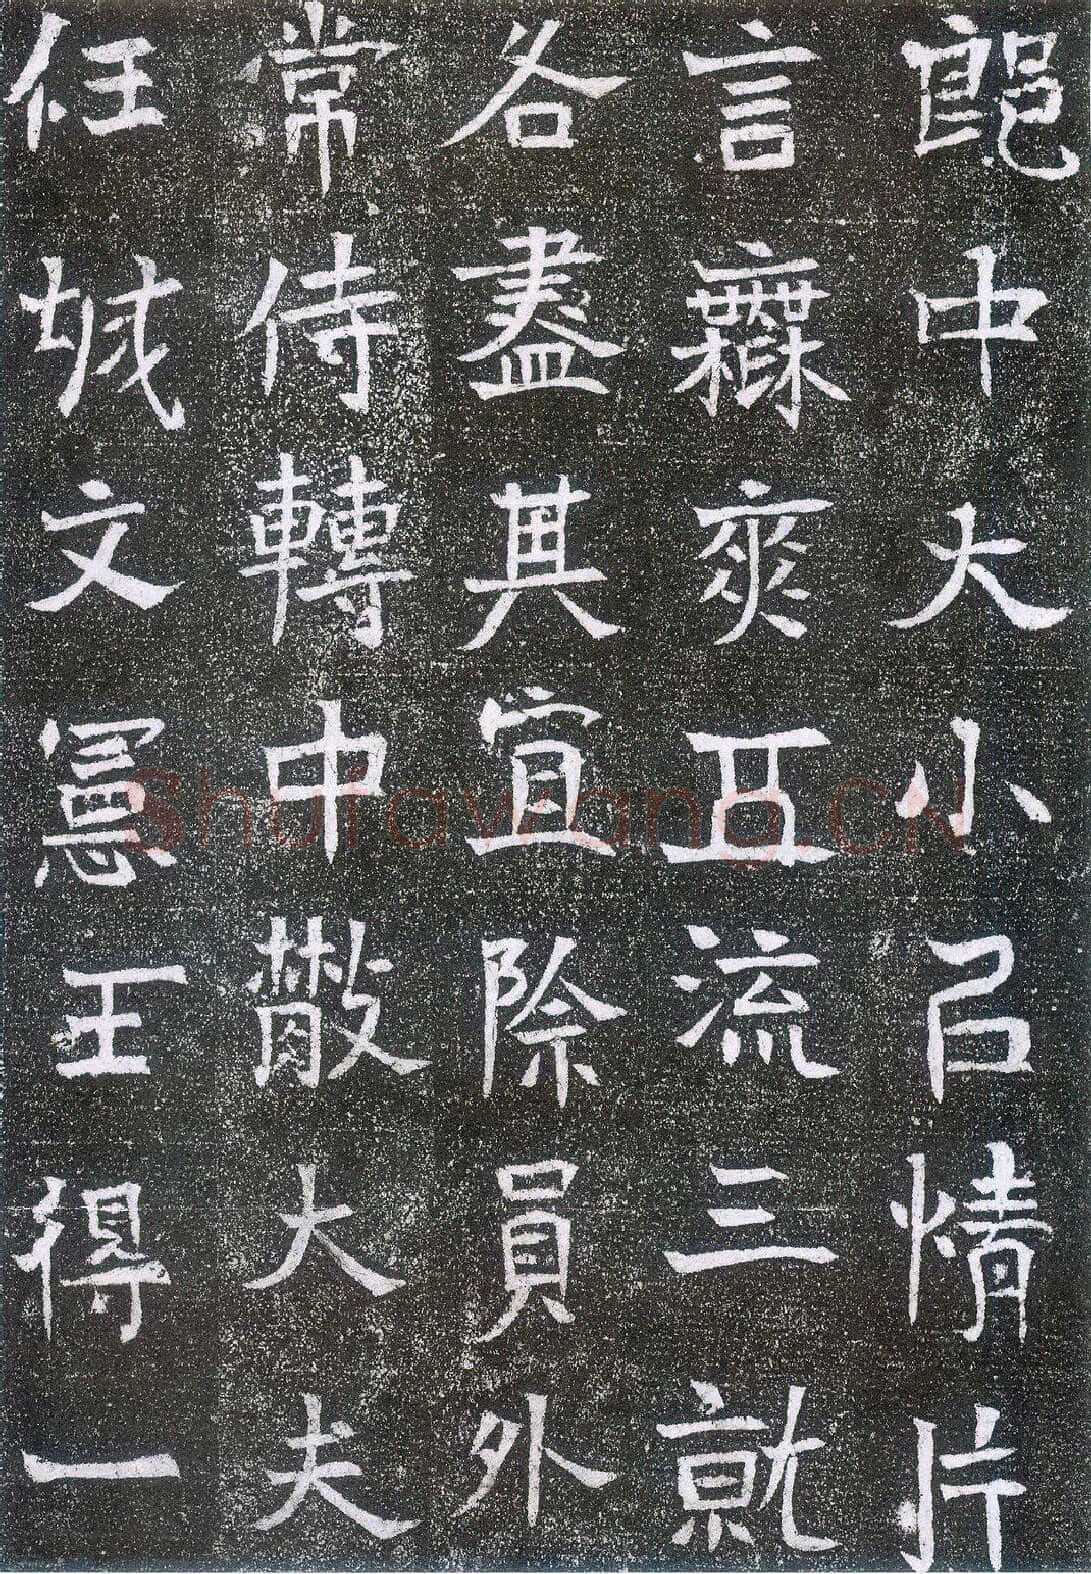 郎中大小以情片
言無爽五流三就
各盡其宜除員外
常侍轉中散大夫
任城文憲王得一
Shufawang.CN